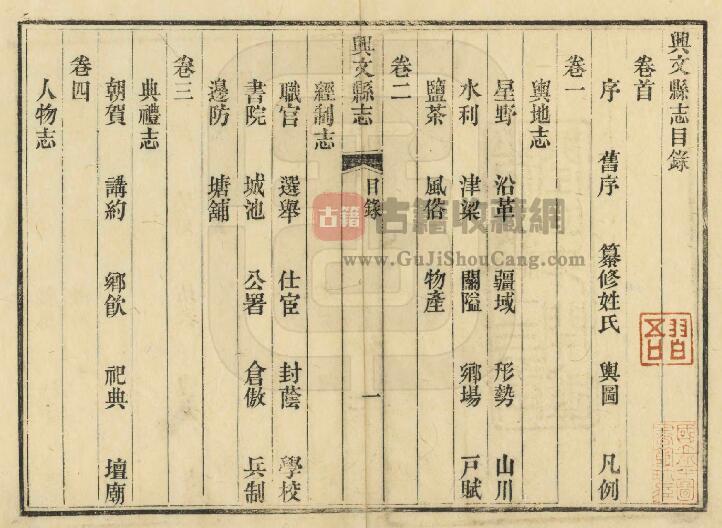 興文縣志目錄
卷首
序 舊序 纂修姓氏 輿圖 凡例
卷一
輿地志
星野 沿革 疆域 形勢 山川
水利 津梁 關隘 鄉場 戶賦
鹽茶 風俗 物產
卷二
興文縣志 目錄 一
經制志
職官 選舉 仕宦 封蔭 學校
書院 城池 公署 倉廒 兵制
邊防 塘鋪
卷三
典禮志
朝賀 講約 鄉飲 祀典 壇廟
卷四
人物志
古籍 古籍收藏網
www.GuJiShouCang.com